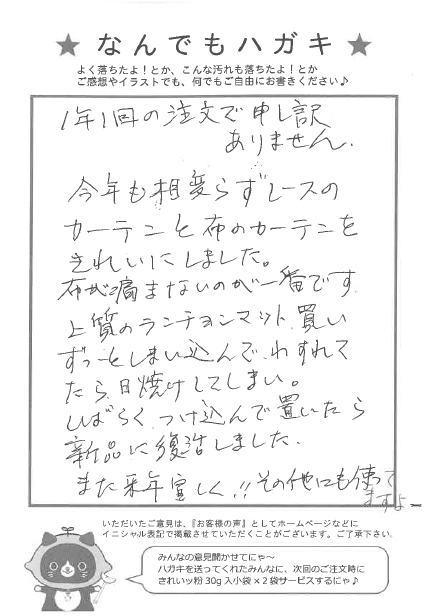 ★なんでもハガキ★
よく落ちたよ！とか、こんな汚れも落ちたよ！とか
ご感想やイラストでも、何でもご自由にお書きください♪
1年1回の注文で申し訳
ありません.
今年も相変らずレースの
カーテンと布のカーテンを
きれいにしました。
布が痛まないのが一番です.
上質のランチョンマット、買い
ずっーとしまい込んで、わすれて
たら、日焼けしてしまい。
しばらく、つけ込んで置いたら
新品に復活しました.
また来年宜しく!!その他にも使って
ますよー
いただいたご意見は、『お客様の声』としてホームページなどに
イニシャル表記で掲載させていただくことがございます。ご了承下さい。
みんなの意見聞かせてにゃ～
ハガキを送ってくれたみんなに、次回のご注文時に
きれいッ粉 30g 入小袋×２袋サービスするにゃ♪